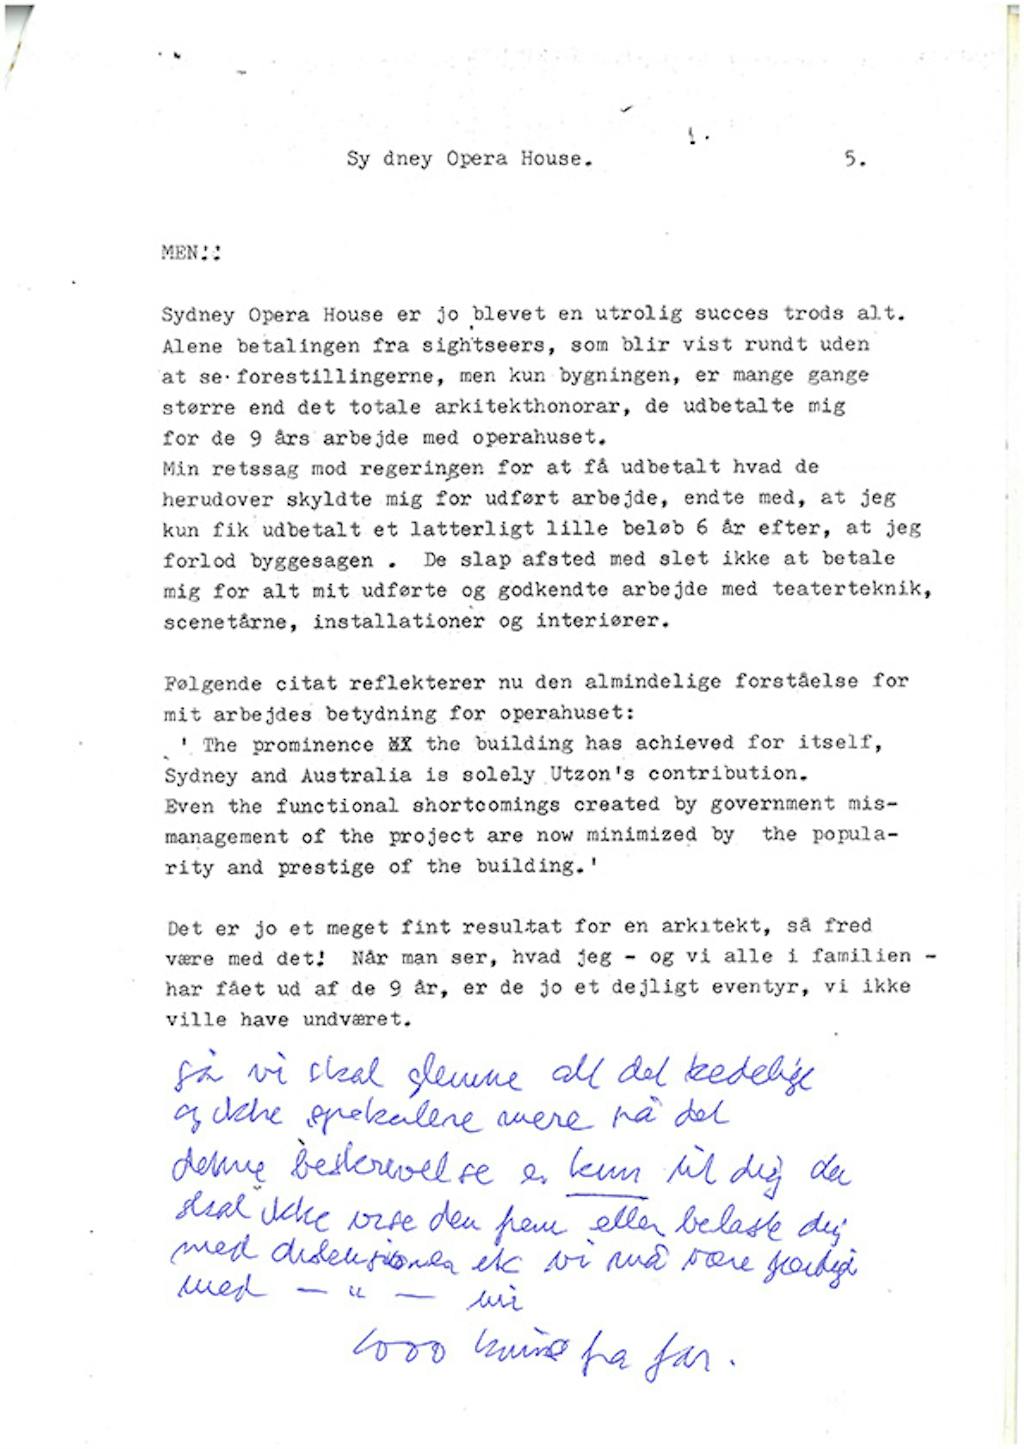 Sy dney Opera House. 5.
MEN!!
Sydney Opera House er jo blevet en utrolig succes trods alt.
Alene betalingen fra sightseers, som blir vist rundt uden
at se forestillingerne, men kun bygningen, er mange gange
større end det totale arkitekthonorar, de udbetalte mig
for de 9 års arbejde med operahuset.
Min retssag mod regeringen for at få udbetalt hvad de
herudover skyldte mig for udført arbejde, endte med, at jeg
kun fik udbetalt et latterligt lille beløb 6 år efter, at jeg
forlod byggesagen . De slap afsted med slet ikke at betale
mig for alt mit udførte og godkendte arbejde med teaterteknik,
scenetårne, installationer og interiører.
Følgende citat reflekterer nu den almindelige forståelse for
mit arbejdes betydning for operahuset:
' The prominence XX the building has achieved for itself,
Sydney and Australia is solely Utzon's contribution.
Even the functional shortcomings created by government mis-
management of the project are now minimized by the popula-
rity and prestige of the building.'
Det er jo et meget fint resultat for en arkitekt, så fred
være med det! Når man ser, hvad jeg - og vi alle i familien -
har fået ud af de 9 år, er de jo et dejligt eventyr, vi ikke
ville have undværet.
så vi skal glemme alt det kedelige
og ikke spekulere mere på det
denne beskrivelse er kun til dig du
skal ikke vise den frem eller belaste dig
med diskussioner etc vi må være færdige
med — " —
1000 kys fra far.